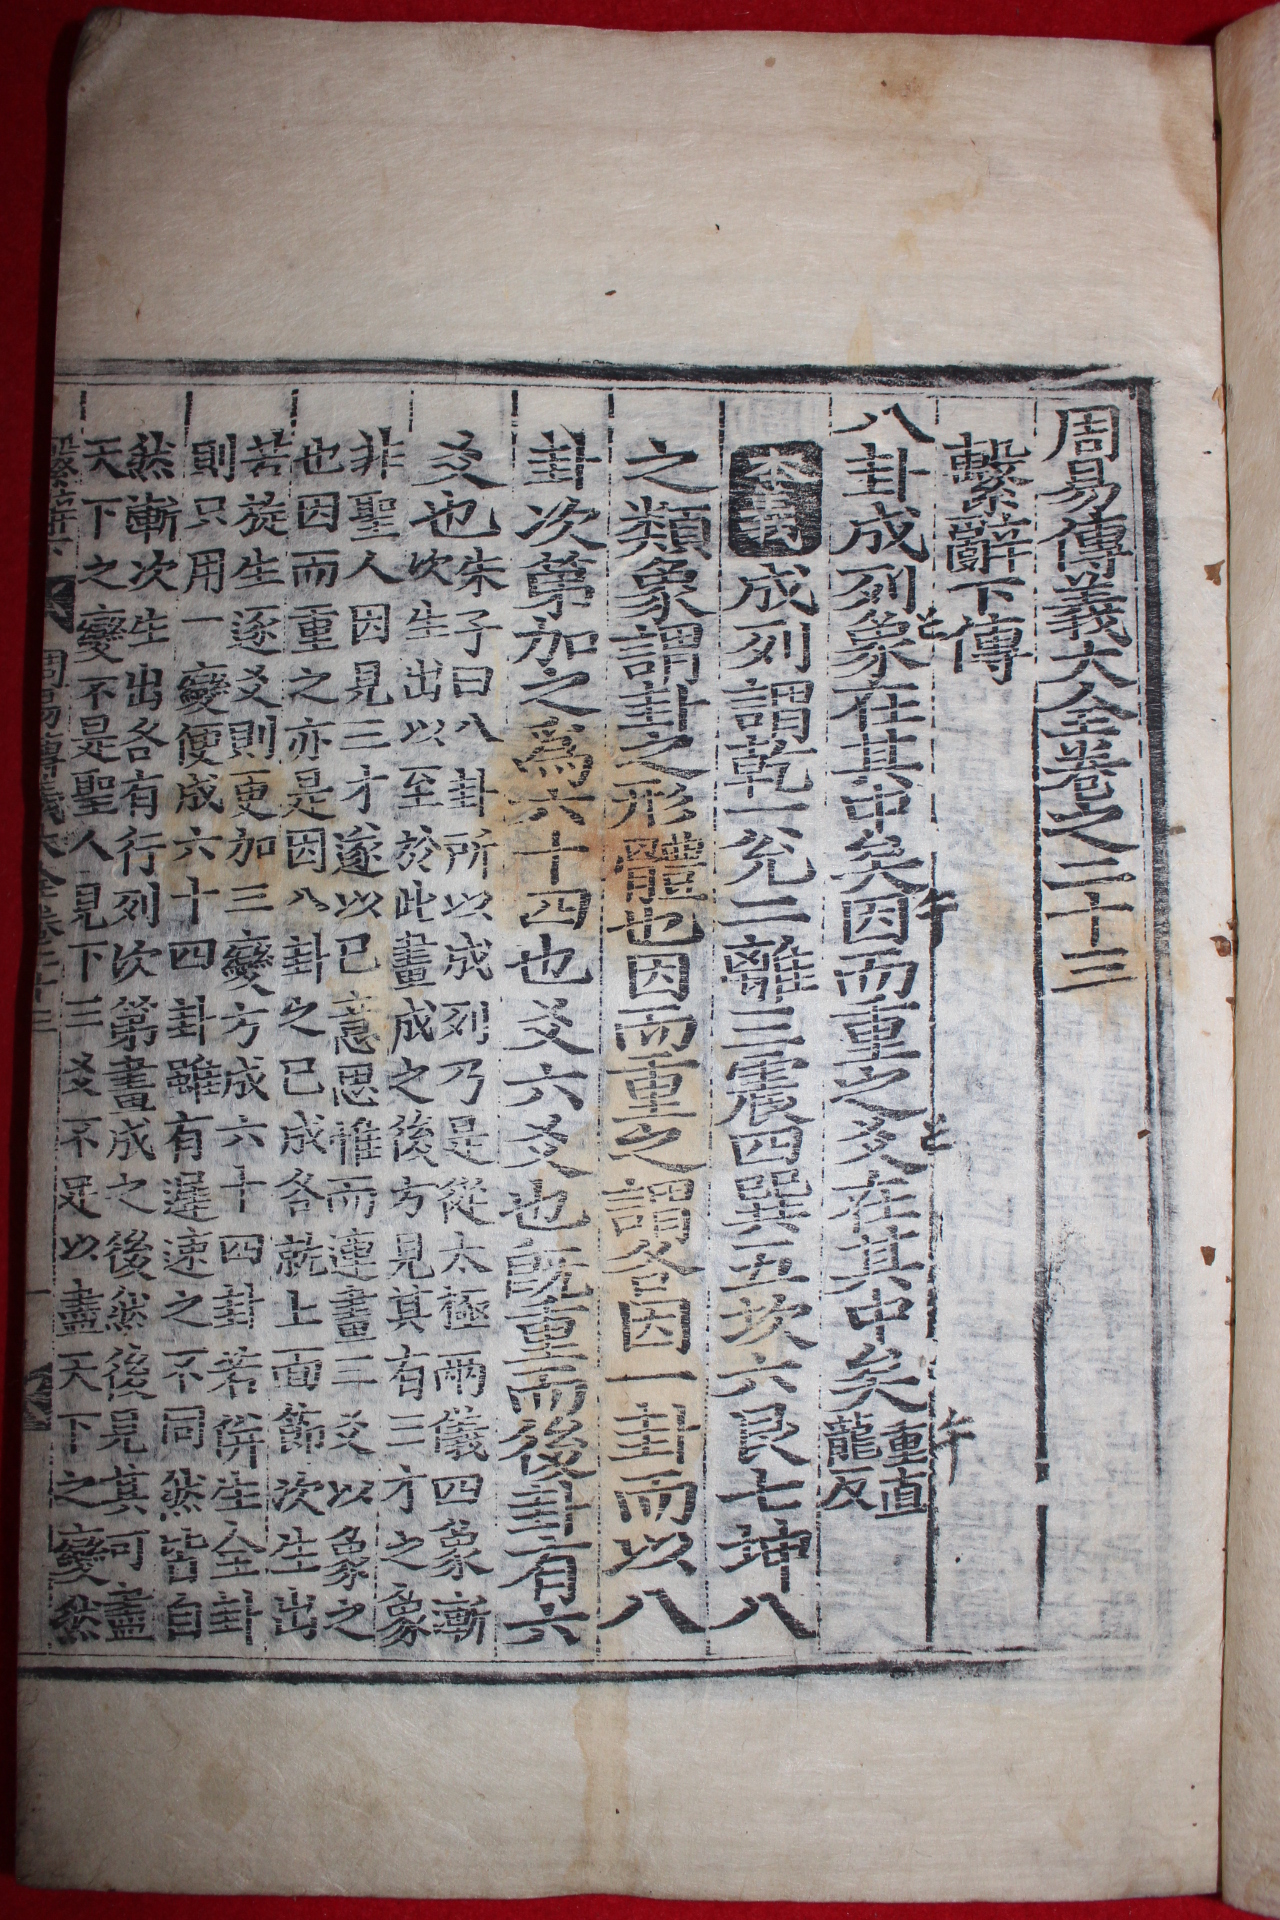 周易傳義大全卷之二十三
繫辭下傳
八卦成列象在其中矣因而重之爻在其中矣重直
龍反
本義成列謂乾一兌二離三震四巽五坎六艮七坤八
之類象謂卦之形體也因而重之謂各因一卦而以八
卦次第加之爲六十四也爻六爻也旣重而後卦有六
爻也朱子曰八卦所以成列乃是從太極兩儀四象漸
次生出以至於此畫成之後方見其有三才之象
非聖人因見三才遂以已意思惟而連畫三爻以象之
也因而重之亦是因八卦之已成各就上面節次生出
若旋生逐爻則更加三變方成六十四卦若併生全卦
則只用一變便成六十四卦雖有遲速之不同然皆自
然漸次生出各有行列次第畫成之後然後見其可盡
天下之變不是聖人見下三爻不足以盡天下之變然
繫辭下 周易傳義大全卷二十三 一